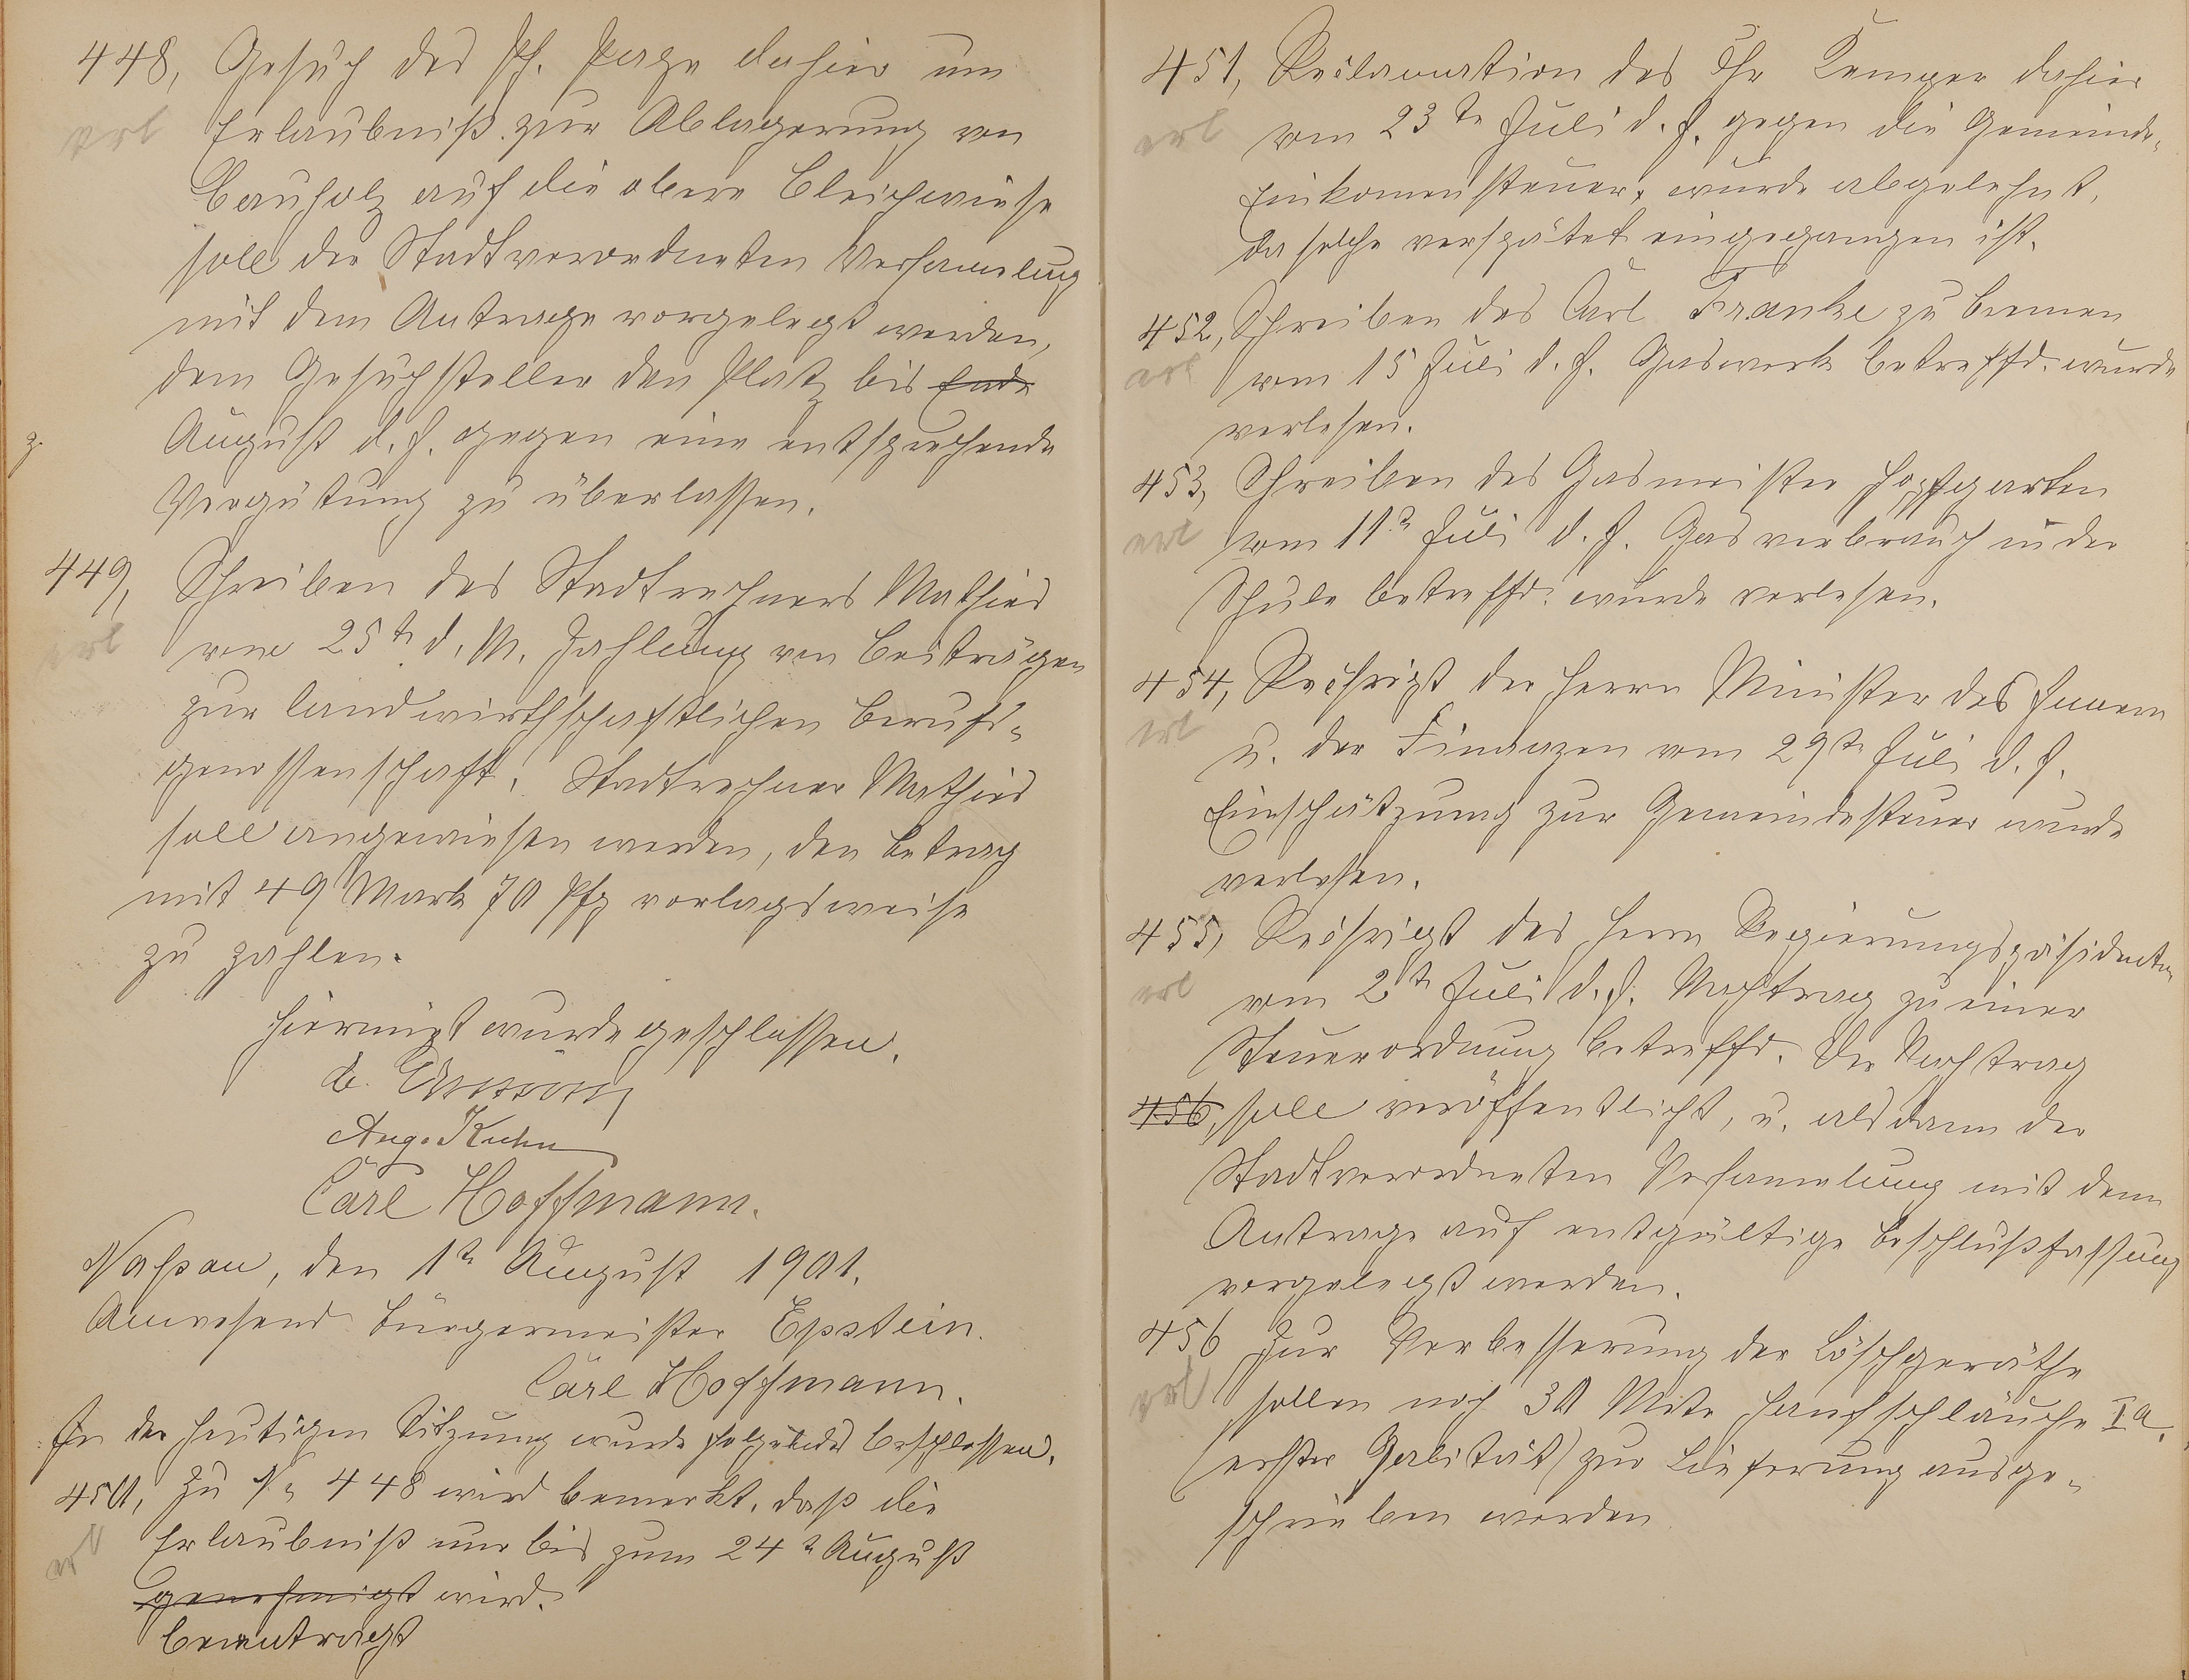 448, Gesuch des Ph. Page dahier um
erl Erlaubniß zur Ablagerung von
Bauholz auf die obere Bleichwiese
soll der Stadtverordneten Versamelung
mit dem Antrage vorgelegt werden,
dem Gesuchsteller den Platz bis Ende
August d. J. gegen eine entsprechende
Vergütung zu überlassen.
449, Schreiben des Stadtrechners Mathies
erl vom 25te d. M. Zahlung von Beiträgen
zur landwirthschaftlichen Berufs-
genossenschaft. Stadtrechner Mathies
soll angewiesen werden, den Betrag
mit 49 Mark 70 Pfg vorlagsweise
zu zahlen.
Hiermit wurde geschlossen.
Aug. Kuhn
Carl Hoffmann.
Naßau, den 1te August 1901.
Anwesend Bürgermeister Epstein.
Carl Hoffmann.
In der heutigen Sitzung wurde folgendes beschlossen.
450, Zu No 448 wird bemerkt, daß die
erl Erlaubniß nur bis zum 24te August
genehmigt wird.
beantragt
451, Reclamation des Chr Kemper dahier
erl vom 23te Juli d. J. gegen die Gemeinde-
Einkomensteuer, wurde abgelehnt,
da solche verspätet eingegangen ist.
452, Schreiben des Carl Franke zu Bremen
erl vom 15 Juli d. J. Gaswerk betreffd. wurde
verlesen.
453, Schreiben des Gasmeister Hopfgarten
erl vom 11te Juli d. J. Gasverbrauch in der
Schule betreffd. wurde verlesen.
454, Rescript der Herrn Minister des Innern
erl u. der Finanzen vom 29te Juli d. J.
Einschätzung zur Gemeindesteuer wurde
verlesen.
455, Rescript des Herrn Regierungspräsidenten
erl vom 2te Juli d. J. Nachtrag zu einer
Steuerordnung betreffd. Der Nachtrag
456, soll veröffentlicht, u. alsdann der
Stadtverordneten Versamelung mit dem
Antrage auf entgültige Beschlußfassung
vorgelegt werden.
456 Zur Verbesserung der Löschgeräthe
erl sollen noch 30 Mete Hanfschläuche Ia.
(erster Qualität) zur Lieferung ausge-
schrieben werden